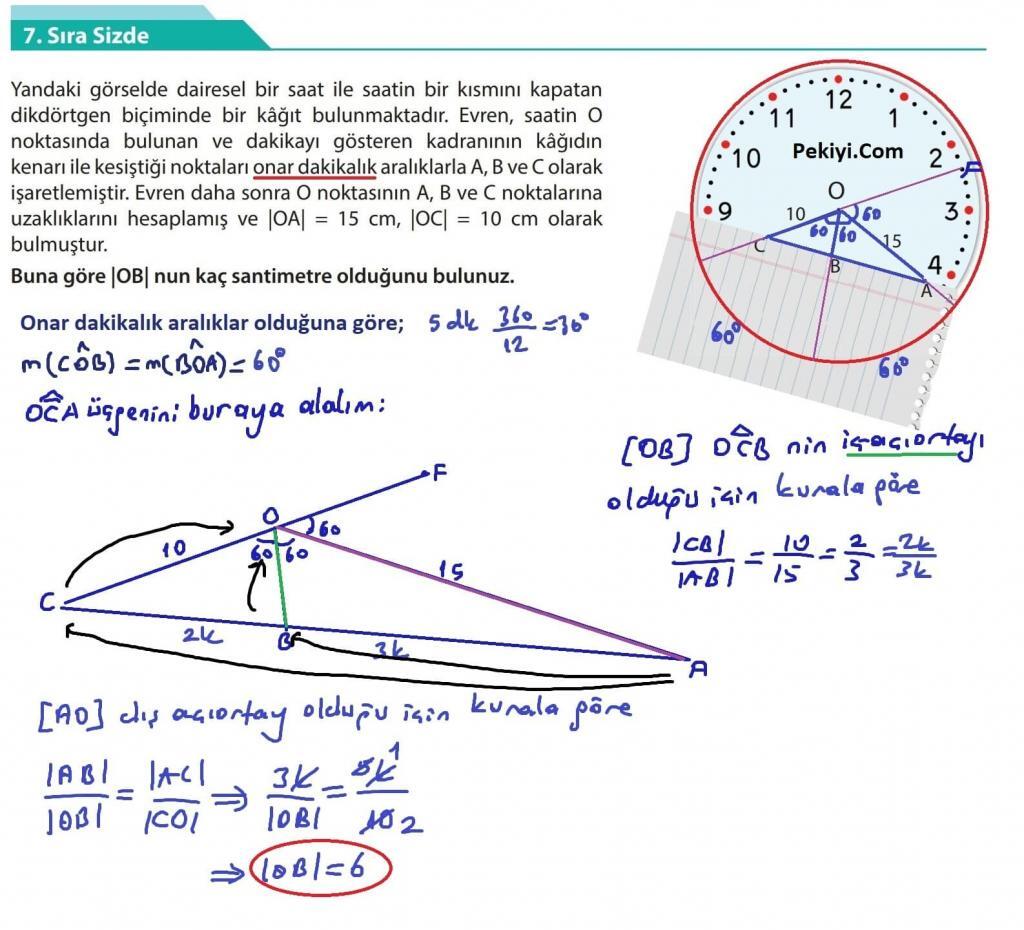 7. Sıra Sizde
Yandaki görselde dairesel bir saat ile saatin bir kısmını kapatan
dikdörtgen biçiminde bir kâğıt bulunmaktadır. Evren, saatin O
noktasında bulunan ve dakikayı gösteren kadranının kâğıdın
kenarı ile kesiştiği noktaları onar dakikalık aralıklarla A, B ve C olarak
işaretlemiştir. Evren daha sonra O noktasının A, B ve C noktalarına
uzaklıklarını hesaplamış ve |OA| = 15 cm, |OC| = 10 cm olarak
bulmuştur.
Buna göre |OB| nun kaç santimetre olduğunu bulunuz.
12
11 1
10 Pekiyi.Com 2 F
O
9 10 60 3
60 60 15
C B 4
A
60° 60°
Onar dakikalık aralıklar olduğuna göre; 5 dk 360/12 = 30°
m(CÔB) = m(BÔA) = 60°
OCA üçgenini buraya alalım:
[OB] OCB nin iç açıortayı
olduğu için kurala göre
|CB|/|AB| = 10/15 = 2/3 = 2k/3k
F
O 60
10 60 60 15
C
2k B 3k A
[AO] dış açıortay olduğu için kurala göre
|AB|/|OB| = |AC|/|CO| ⇒ 3k/|OB| = 5k/10 1 2
⇒ |OB| = 6